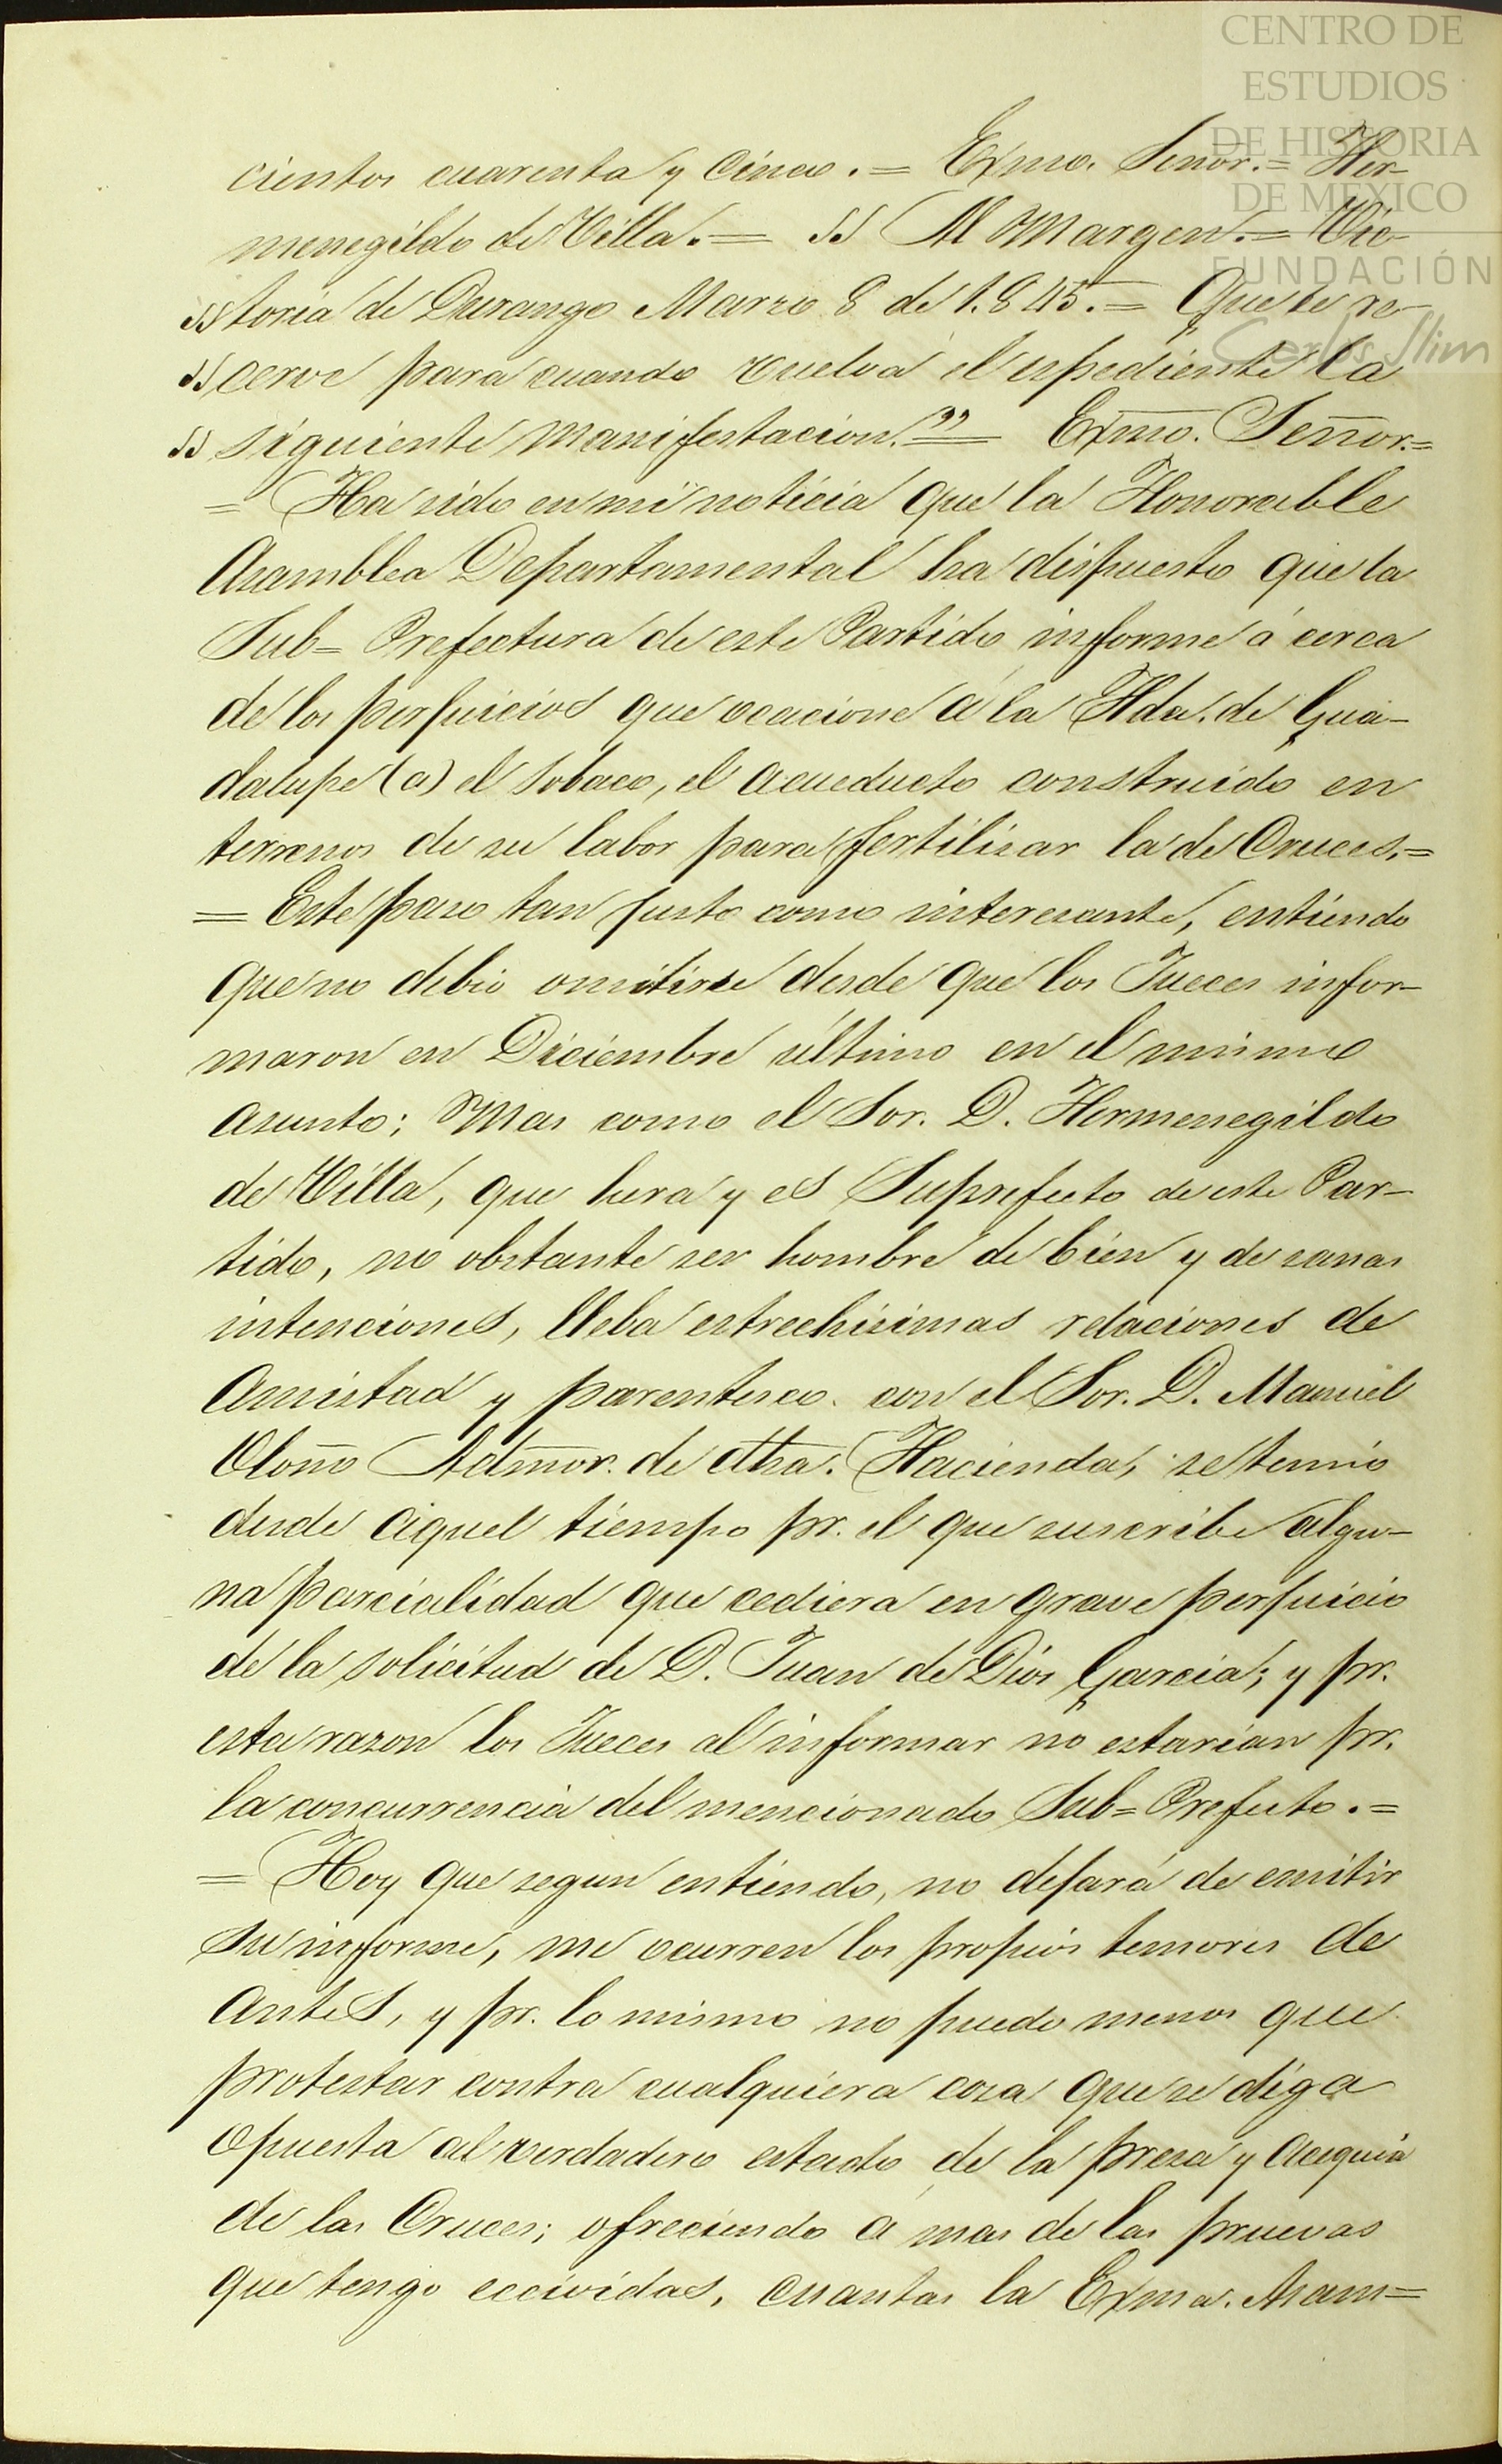 CENTRO DE
ESTUDIOS
DE HISTORIA
DE MEXICO
FUNDACIÓN
Carlos Slim
cientos cuarenta y Cinco.= Exmo. Senor.= Her-
menegildo de Villa.= „ Al Margen.= Vic-
„toria de Durango Marzo 8 de 1.845.= Que se re-
„cerve para cuando vuelva el espediente la
„ siguiente manifestacion."= Exmo. Señor.=
= Ha sido en mi noticia que la Honorable
Asamblea Departamental ha dispuesto que la
Sub= Prefectura de este Partido informe á cerca
de los perjuicios que ocacione a la Hda. de Gua-
dalupe (a) el Sobaco, el acueducto construido en
terrenos de su labor para fertilisar la de Cruces.=
= Este paso tan justo como interesante, entiendo
que no debio omitirse desde que los Jueces infor-
maron en Diciembre último en el mismo
asunto; Mas como el Sor. D. Hermenegildo
de Villa, que hera y es Suprefecto de este Par-
tido, no obstante ser hombre de bien y de sanas
intenciones, lleba estrechisimas relaciones de
Amistad y parentesco con el Sor. D. Manuel
Admor. de dha. Hacienda, se temio
desde aquel tiempo pr. el que suscribe algu-
na parcialidad que cediera en grave perjuicio
de la solicitud de D. Juan de Dios Garcia; y pr.
esta razon los Jueces al informar no estarian pr.
la concurrencia del mencionado Sub= Prefecto.=
= Hoy que segun entiendo, no dejará de emitir
su informe, me ocurren los propios temores de
Antes, y pr. lo mismo no puedo menos que
protestar contra cualquiera cosa que se diga
Opuesta al verdadero estado de la presa y Acequia
de las Cruces; ofreciendo a mas de las pruevas
que tengo eccividas, cuantas la Exma. Asam=